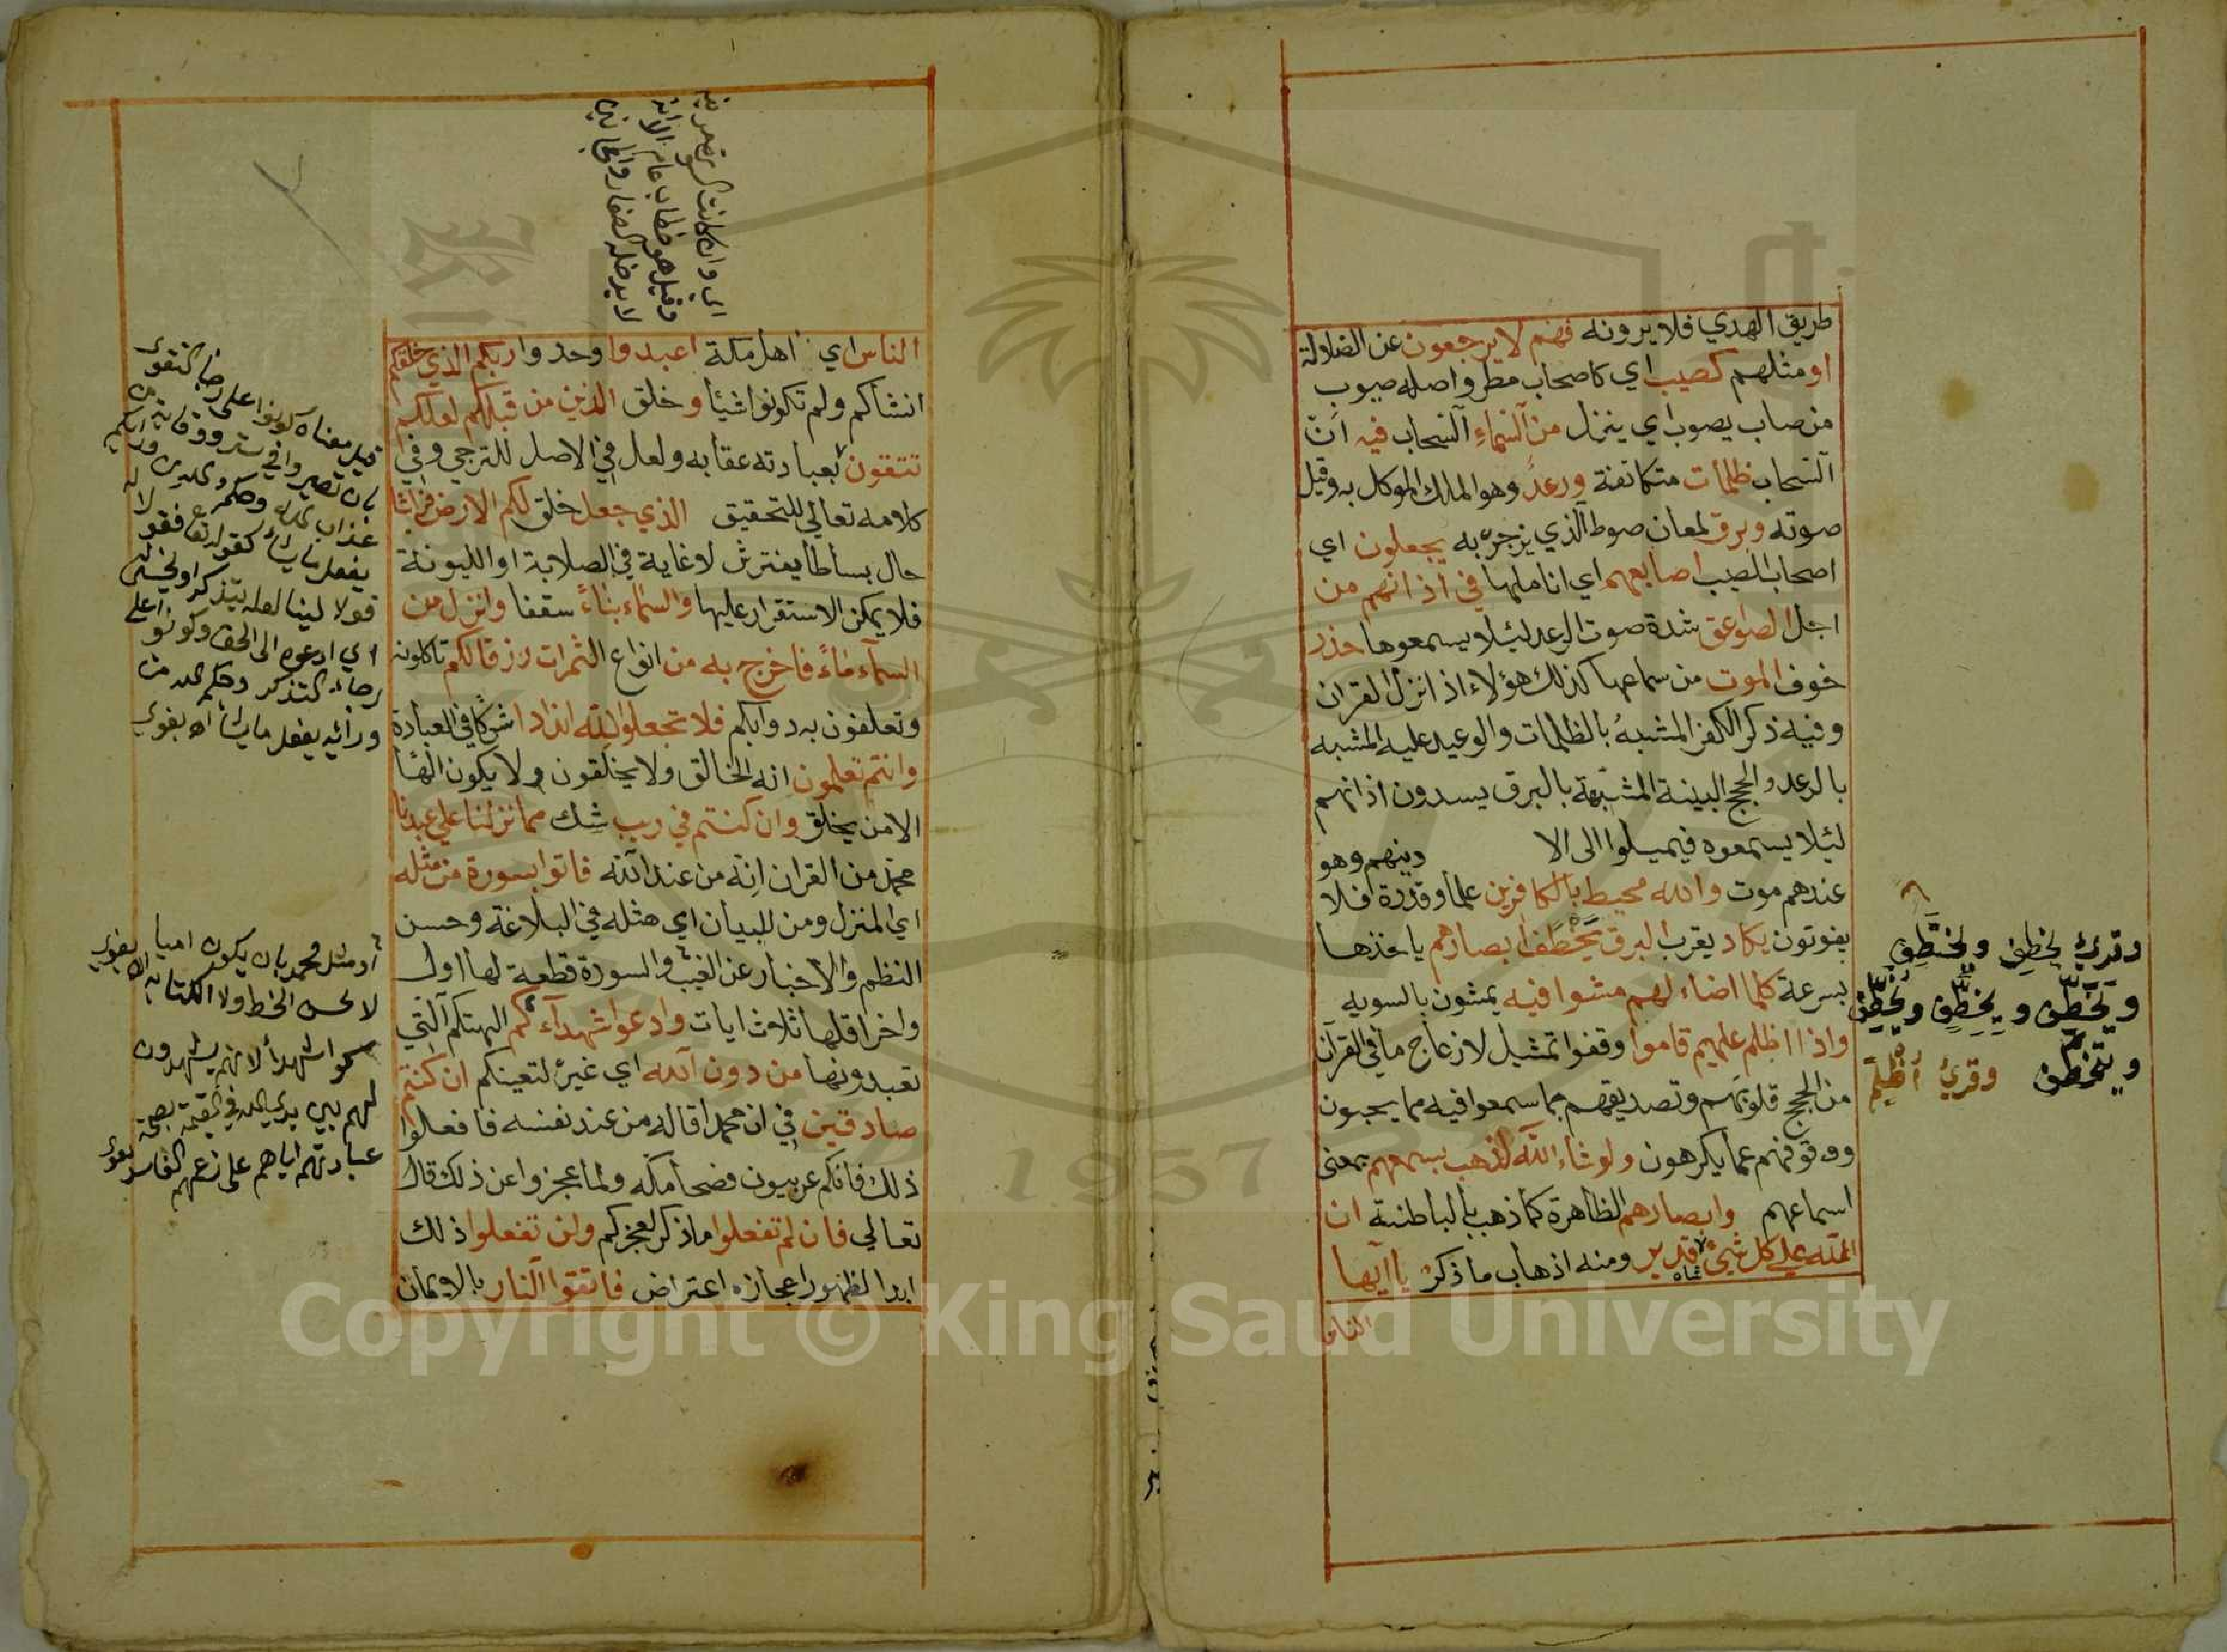 طريق الهدي فلا يرونه فهم لا يرجعون عن الضلالة
او مثلهم كصيب اي كاصحاب مطر واصله صيوب
من صاب يصوب اي ينزل من السماء السحاب فيه اي
السحاب ظلمات متكاثفة ورعد وهو الملك الموكل به وقيل
صوته وبرق لمعان صوط الذي يزجره به يجعلون اي
اصحاب الصيب اصابعهم اي اناملها في اذانهم من
اجل الصواعق شدة صوت الرعد لئيلا يسمعوها حذر
خوف الموت من سماعها كذلك هؤلاء اذا نزل القران
وفيه ذكر الكفر المشبه بالظلمات والوعيد عليه المشبه
بالرعد والحجج البينة المشبهة بالبرق يسدون اذانهم
لئيلا يسمعوه فيميلوا الى الا دينهم وهو
عندهم موت والله محيط بالكافرين علما وقدرة فلا
يفوتون يكاد يقرب البرق يخطف ابصارهم ياخذها
بسرعة كلما اضاء لهم مشوا فيه يمشون بالسويه
واذا اظلم عليهم قاموا وقفوا تمثيل لازعاج ما في القرآن
من الحجج قلوبهم وتصديقهم بما سمعوا فيه مما يحبون
ووقوفهم عما يكرهون ولو شاء الله لذهب بسمعهم بمعنى
اسماعهم وابصارهم الظاهرة كما ذهب بالباطنة ان
الله علي كل شيئ شاه قدير ومنه اذهاب ما ذكر يا ايها
الناس
وقرئ يخطِف ويختطف
ويَخَطِّف ويِخِطِّف ويُخَطِّف
ويتخطف وقرئ أُظلِم
الناس اي اهل مكة اعبدوا وحدوا ربكم الذي خلقكم
انشأكم ولم تكونوا شيأ وخلق الذين من قبلكم لعلكم
تتقون بعبادته عقابه ولعل في الاصل للترجي وفي
كلامه تعالي للتحقيق الذي جعل خلق لكم الارض فراشا
حال بساطا يفترش لا غاية في الصلابة او الليونة
فلا يمكن الاستقرار عليها والسماء بناء سقفا وانزل من
السماء ماء فاخرج به من انواع الثمرات رزقا لكم تاكلونه
وتعلفون به دوابكم فلا تجعلوا لله اندادا شركا في العبادة
وانتم تعلمون انه الخالق ولا يخلقون ولا يكون الها
الا من يخلق وان كنتم في ريب شك مما نزلنا علي عبدنا
محمد من القران انه من عند الله فاتوا بسورة من مثله
اي المنزل ومن للبيان اي مثله في البلاغة وحسن
النظم والاخبار عن الغيب والسورة قطعة لها اول
واخر اقلها ثلاث ايات وادعوا شهداءكم الهتكم التي
تعبدونها من دون الله اي غيره لتعينكم ان كنتم
صادقين في ان محمدا قاله من عند نفسه فافعلوا
ذلك فانكم عربيون فصحا مثله ولما عجزوا عن ذلك قال
تعالي فان لم تفعلوا ما ذكر لعجزكم ولن تفعلوا ذلك
ابدا لظهور اعجازه اعتراض فاتقوا النار بالايمان
وقيل هو خطاب عام الا انه
لا يدخله الصغار والمجانين
قيل معناه كونوا على رجا التقوى
بان تصيروا في ستر ووقاية من
عذاب الله وحكم الله من ورائكم
يفعل ما يشأ كقوله تعا فقولا له
قولا لينا لعله يتذكر او يخشى
اي ادعوه الى الحق وكونوا على
رجاء التذكر وحكم الله من
ورائه يفعل ما يشأ اه بغوي
او مثل محمد بان يكون اميا
لا يحسن الخط ولا الكتابة اه بغوي
سموا شهدأ لانهم يشهدون
لهم بين يدي الله في القيمة بصحة
عبادتهم اياهم على زعمهم الفاسد
1957
Copyright © King Saud University